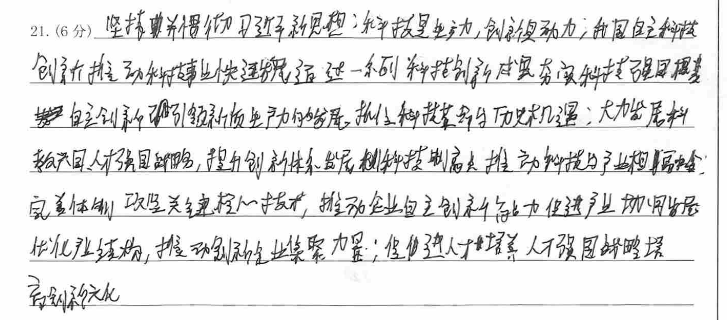 21.(6分) 坚持并贯彻习近平新思想;科技是生动,创新是动力;我国自主科技
创新推动科技事业快速发展,近述一系列科技创新成果夯实科技强国根基
自主创新引领新质生产力的发展,抓住科技革命与历史机遇;大力发展科
教兴国,人才强国战略,提升创新体系发展,科技制高点推动科技与产业相融合;
完善体制,攻坚关键核心技术,推动企业自主创新能力促进产业协同发展
优化产业结构,推动创新企业集聚力量;促进人才培养人才强国战略培
育创新文化